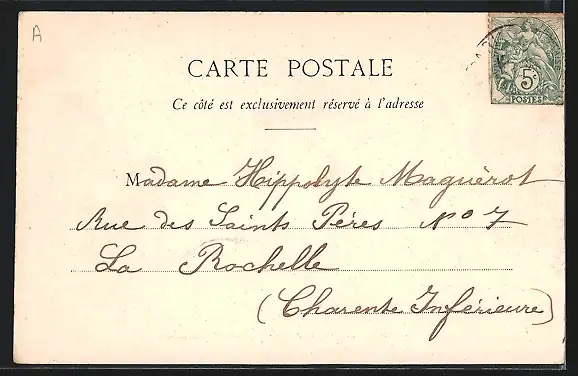 A
CARTE POSTALE
Ce côté est exclusivement réservé à l'adresse
5c
POSTES
Madame Hippolyte Maguérot
Rue des Saints Pères Nº 7
La Rochelle
(Charente Inférieure)